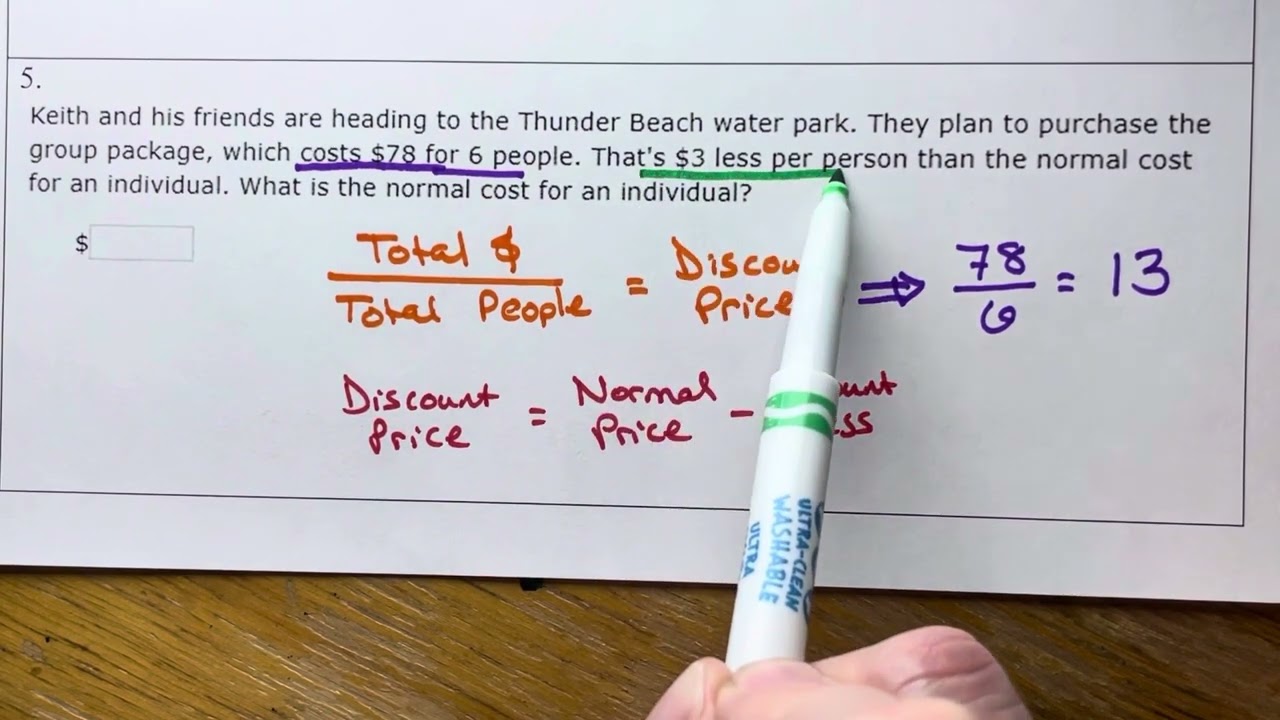 5.
Keith and his friends are heading to the Thunder Beach water park. They plan to purchase the
group package, which costs $78 for 6 people. That's $3 less per person than the normal cost
for an individual. What is the normal cost for an individual?
$
Total $
Total People
=
Discou
Price
⇒
78
6
= 13
Discount
Price
=
Normal
Price
-
unt
ss
ULTRA-CLEAN
WASHABLE
ULTRA